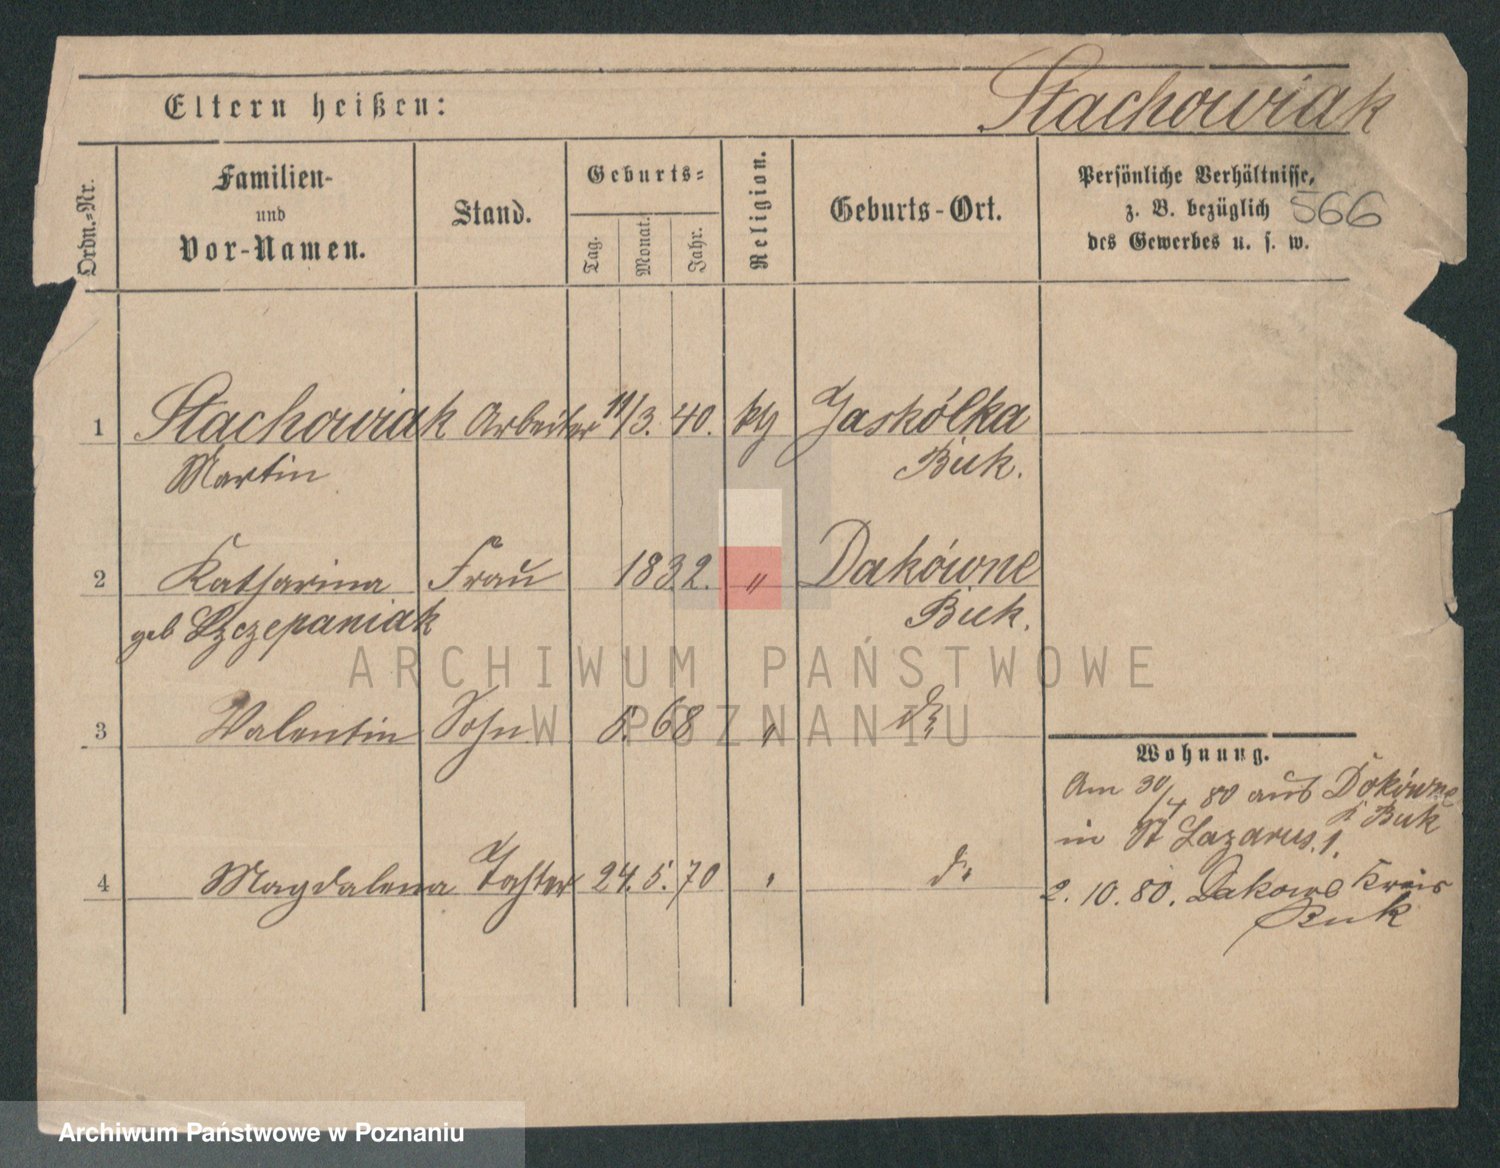 Stachowiak
Eltern heißen:
Ordn.=Nr.
Familien-
und
Vor-Namen.
Stand.
Geburts=
Tag.
Monat.
Jahr.
Religion.
Geburts-Ort.
Persönliche Verhältnisse,
z. B. bezüglich
des Gewerbes u. s. w.
566
1 Stachowiak Arbeiter 11/3. 40. kth Jaskólka
Martin Buk.
2 Katharina Frau 1832. " Dakówne
geb Szczepaniak Buk.
3 Valentin Sohn 5. 68 " do
4 Magdalena Tochter 24. 5. 70 " do
Wohnung.
Am 30/4 80 aus Dokówne
K Buk
in St Lazarus. 1.
2. 10. 80. Dakowe Kreis
Buk
ARCHIWUM PAŃSTWOWE
W POZNANIU
Archiwum Państwowe w Poznaniu